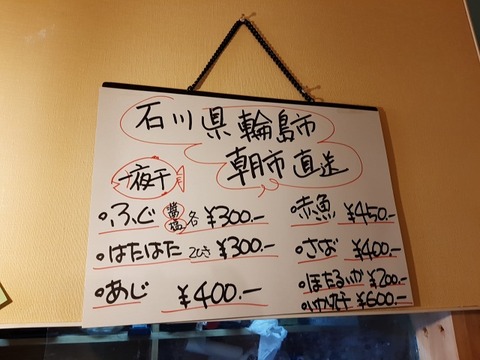 石川県輪島市
朝市直送
一夜干
・ふぐ 各 ¥300.-
・はたはた 2ひき ¥300.-
・あじ ¥400.-
・赤魚 ¥450.-
・さば ¥400.-
・ほたるいか ¥200.-
・いか一夜干 ¥600.-